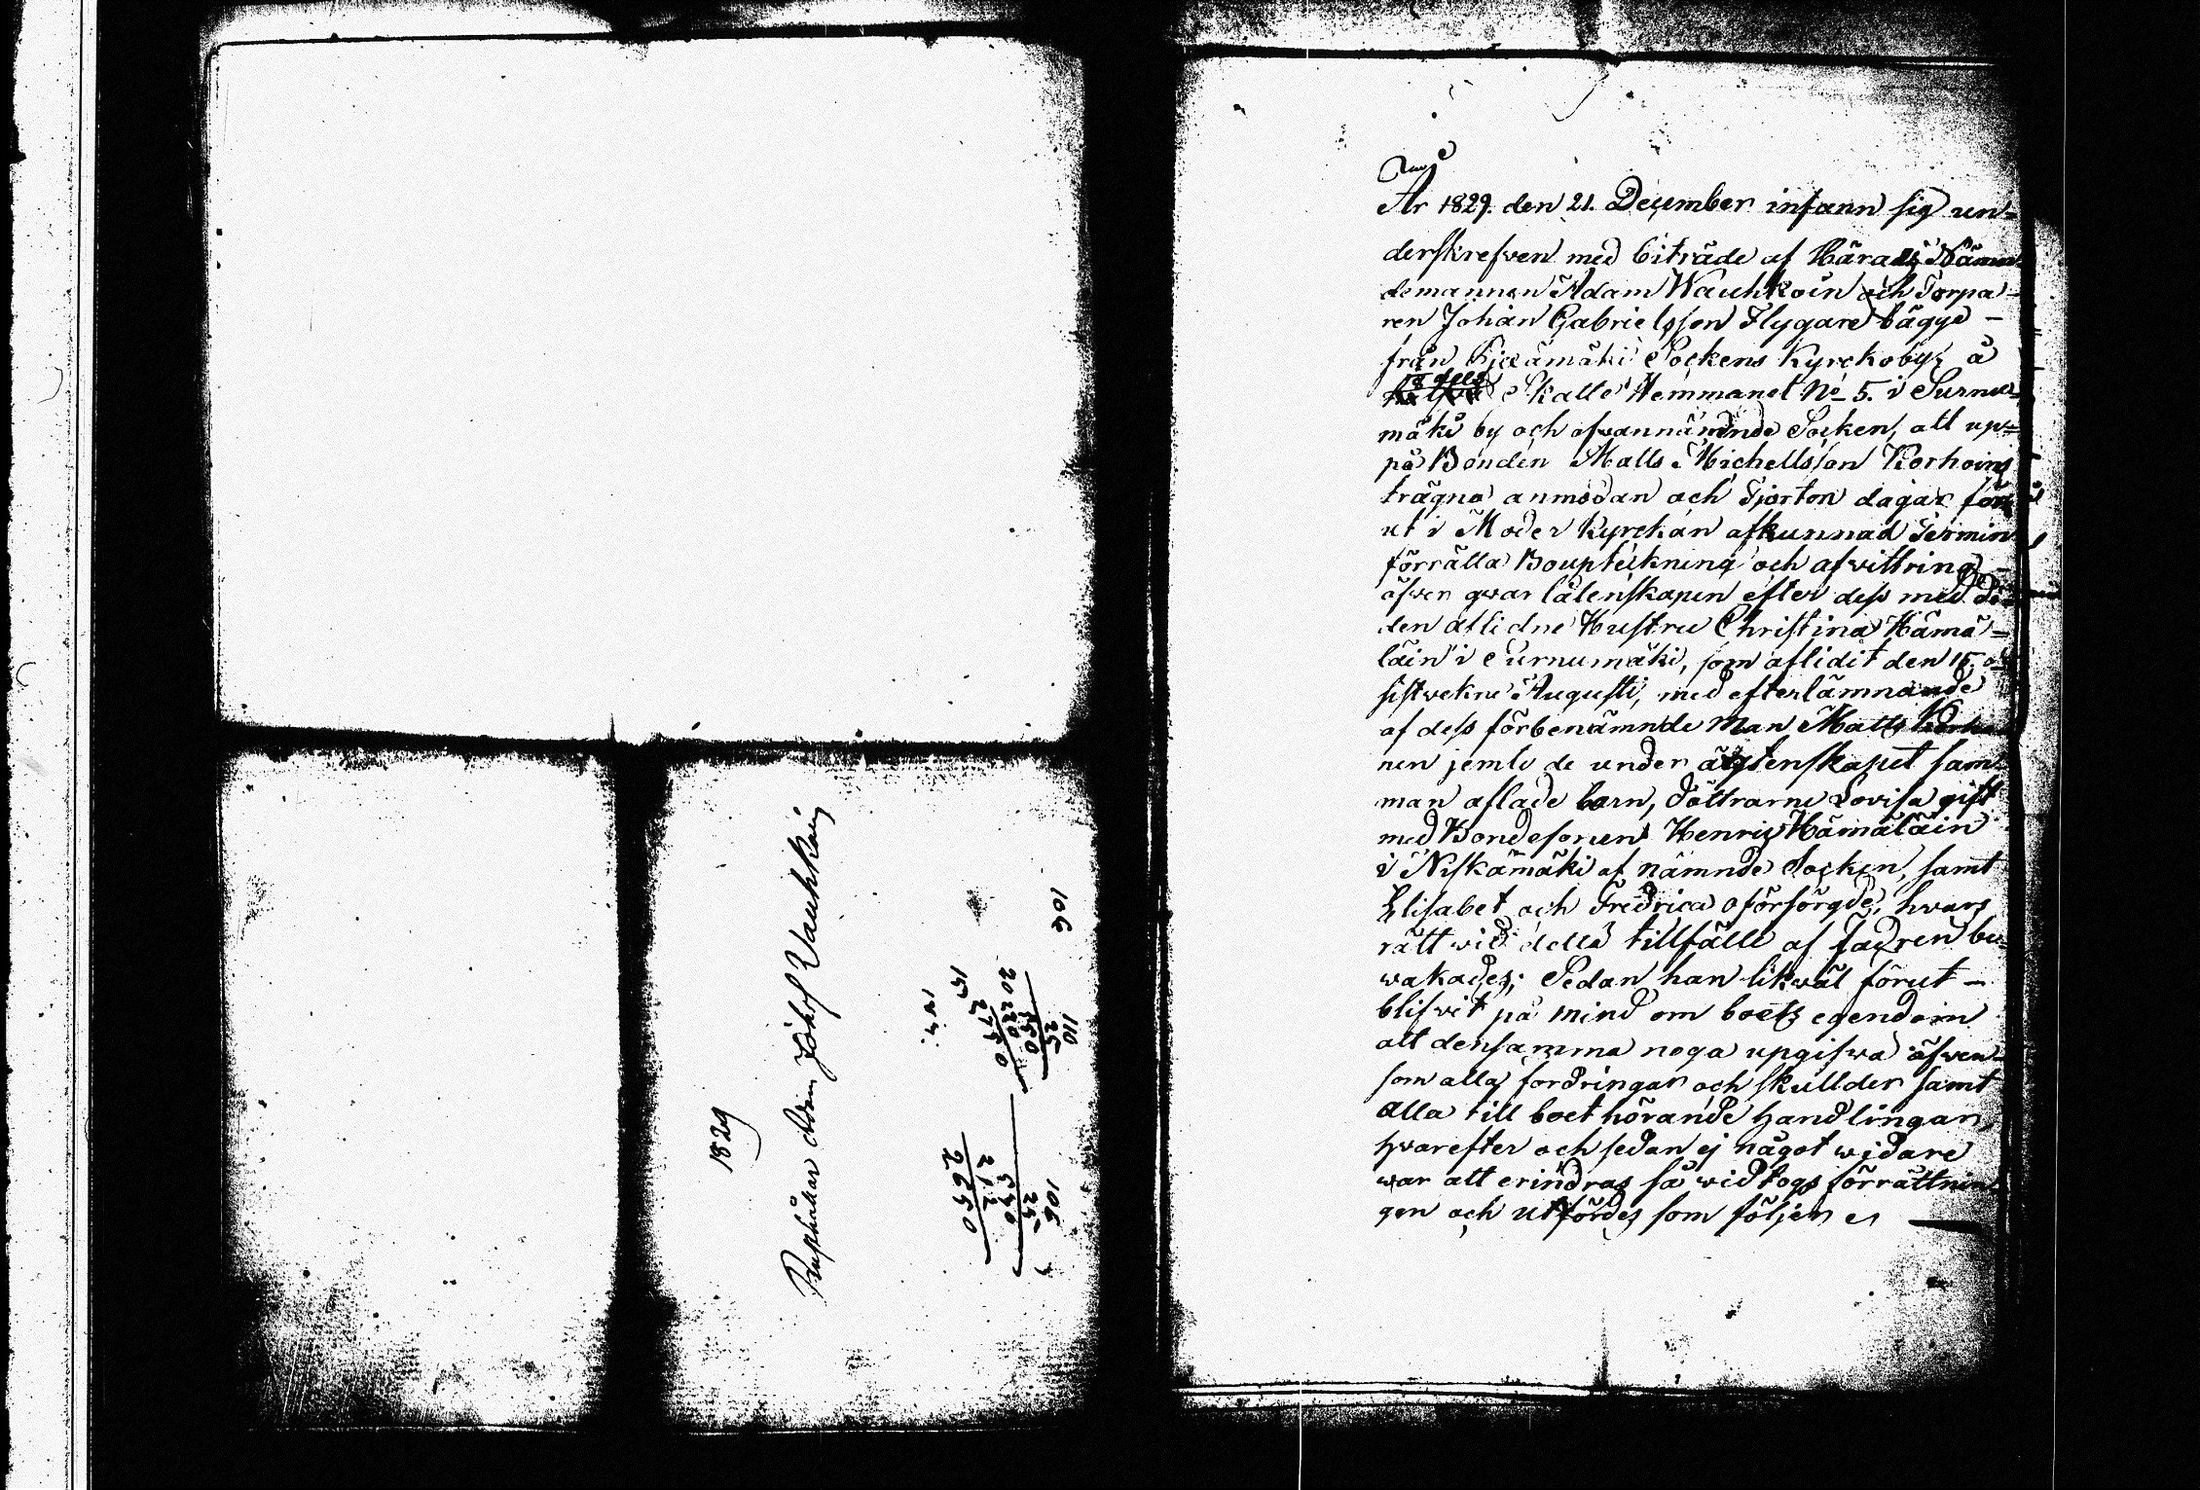 1829
106
110
25
150
20 220
2750
15
106
25
530
212
2650
År 1829. den 21. December infann sig un=
derskrefven med biträde af Härads Nämn
demannen Adam Wauhkoin och Torpa=
ren Johan Gabrielsson Flygare bägge –
från Pjexämäki Sockens Kyrckoby, å
Skatte Hemmanet No 5. i Surnu=
mäki by och ofvannämnde Socken, att up=
på Bonden Matts Michellsson Korhoins
trägna anmodan och Fjorton dagar för
ut i Moder Kyrckan afkunnad Termin
förrätta Bouptekning och afvittring –
öfver qvarlåtenskapen efter dess med dö
den afledne Hustru Christina Hämä=
läin i Surnumäki, som aflidit den 15.
sistvekne Augusti, med efterlämnande
af dess förbenämnde Man Matts Korho
nen jemte de under ägtenskapet sam
man aflade barn, döttrarne Lovisa gift
med Bondesonen Henric Hämäläin
i Niskamäki af nämnde Socken, samt
Elisabet och Fredrica oförsörgde, hvars
rätt wid detta tillfälle af fadren be=
wakades; Sedan han likwäl förut –
blifvit påmind om boets egendom
att densamma noga upgifwa äfven
som alla fordringar och skullder samt
alla till boet hörande handlingar,
hwarefter och sedan ej något widare
war att erindras så widtogs förrättnin
gen och utfördes som följer